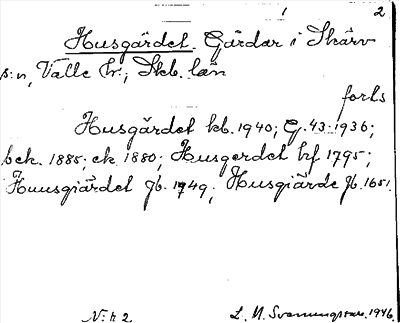 1 2
Husgärdet. Gårdar i Skärv
s:n, Valle hr; Skb. län
forts
Husgärdet kb. 1940; G. 43. 1936;
bek. 1885; ek. 1880; Husgerdet kf 1795;
Huusgiärdet Jb. 1749; Husgiärde Jb. 1651.
N:r 2 L. M. 1946.